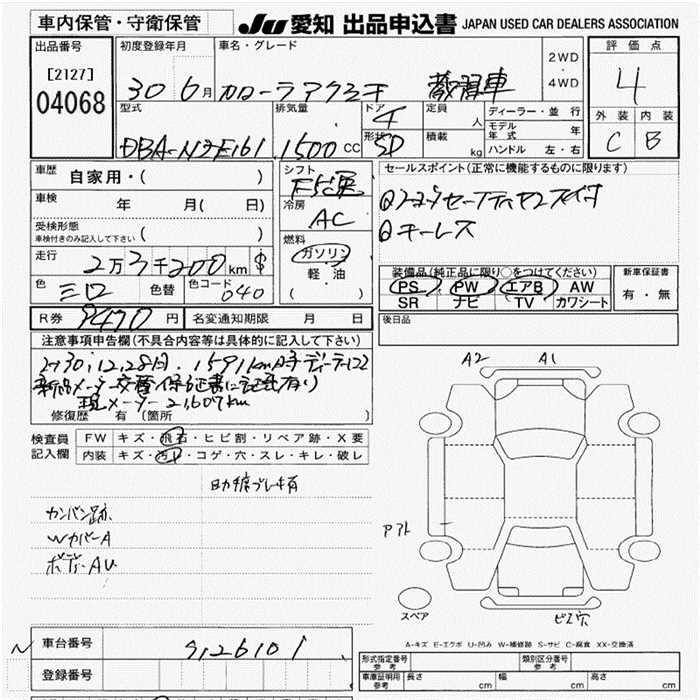 車内保管・守衛保管
JU 愛知 出品申込書 JAPAN USED CAR DEALERS ASSOCIATION
出品番号 [2127] 04068
初度登録年月 30 6月
車名・グレード カローラアクシオ 教習車
2WD ・ 4WD
評価点 4
外装 内装
C B
型式 DBA-NZE161
排気量 1500 CC
ドア 4
形状 SD
定員 人
積載 kg
ディーラー・並行
モデル年式 年
ハンドル 左・右
車歴 自家用・( )
車検 年 月( 日)
受検形態 車検付きのみ記入して下さい ( )
走行 2万3千200km $
色 シロ 色替 色コード 040
シフト F5速
冷房 AC
燃料 ガソリン
軽・油
( )
セールスポイント(正常に機能するものに限ります)
①トヨタセーフティセンス付
②キーレス
装備品(純正品に限り○をつけてください)
PS PW エアB AW
SR ナビ TV カワシート
新車保証書
有・無
R券 9470円 名変通知期限 月 日
後日品
注意事項申告欄(不具合内容等は具体的に記入して下さい)
H30,12,28日, 1591km時ディーラーにて
新品メーター交替(保証書に記載有り)
現メーター 21,607km
修復歴 有(箇所 )
検査員記入欄
FW キズ・飛石・ヒビ割・リペア跡・X要
内装 キズ・汚レ・コゲ・穴・スレ・キレ・破レ
助手席ブレーキ有
カンバン跡
WカバーA
ボデーAU
A2 A1
アト
スペア
ビス穴
A-キズ E-エクボ U-凹み W-補修跡 S-サビ C-腐食 XX-交換済
N 車台番号 9126101
登録番号
形式指定番号 参考
類別区分番号 参考
車庫証明用 参考 長さ cm 幅 cm 高さ cm